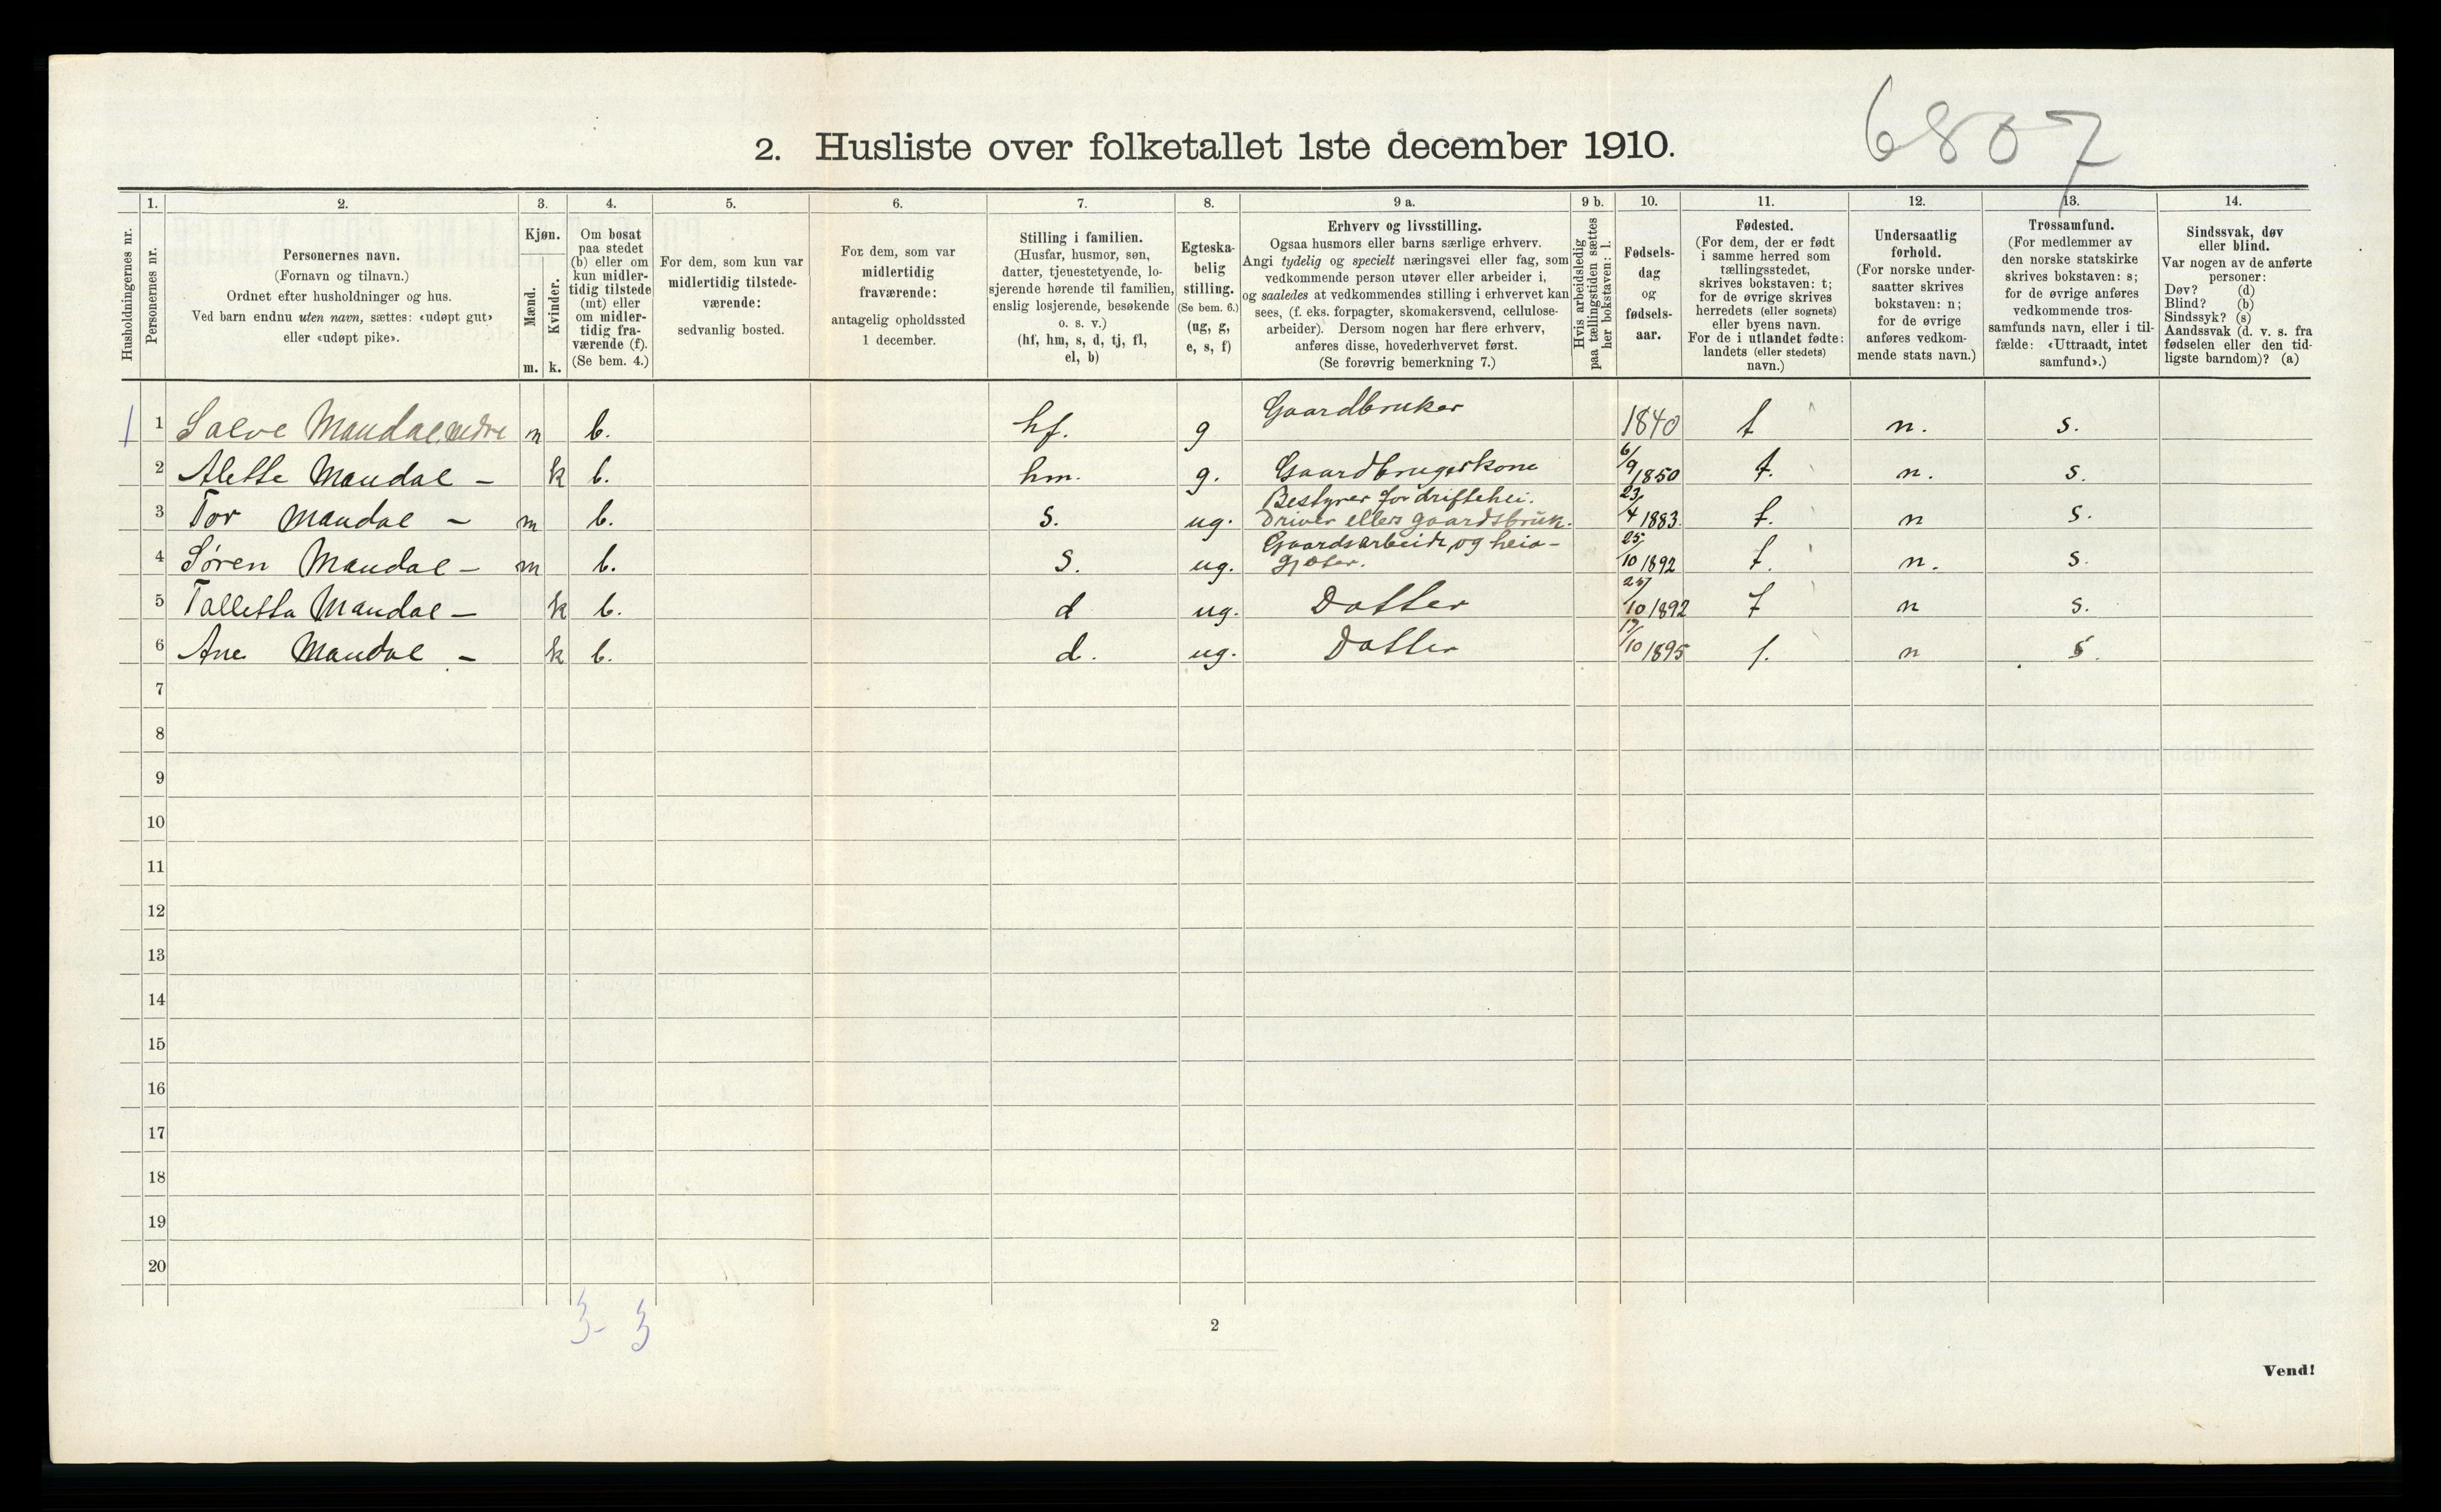 6807
2. Husliste over folketallet 1ste december 1910.
Husholdningernes nr.
1.
Personernes nr.
2.
Personernes navn.
(Fornavn og tilnavn.)
Ordnet efter husholdninger og hus.
Ved barn endnu uten navn, sættes: «udøpt gut»
eller «udøpt pike».
3.
Kjøn.
Mænd.
Kvinder.
m. k.
4.
Om bosat
paa stedet
(b) eller om
kun midler-
tidig tilstede
(mt) eller
om midler-
tidig fra-
værende (f).
(Se bem. 4.)
5.
For dem, som kun var
midlertidig tilstede-
værende:
sedvanlig bosted.
6.
For dem, som var
midlertidig
fraværende:
antagelig opholdssted
1 december.
7.
Stilling i familien.
(Husfar, husmor, søn,
datter, tjenestetyende, lo-
sjerende hørende til familien,
enslig losjerende, besøkende
o. s. v.)
(hf, hm, s, d, tj, fl,
el, b)
8.
Egteska-
belig
stilling.
(Se bem. 6.)
(ug, g,
e, s, f)
9 a.
Erhverv og livsstilling.
Ogsaa husmors eller barns særlige erhverv.
Angi tydelig og specielt næringsvei eller fag, som
vedkommende person utøver eller arbeider i,
og saaledes at vedkommendes stilling i erhvervet kan
sees, (f. eks. forpagter, skomakersvend, cellulose-
arbeider). Dersom nogen har flere erhverv,
anføres disse, hovederhvervet først.
(Se forøvrig bemerkning 7.)
9 b.
Hvis arbeidsledig
paa tællingstiden sættes
her bokstaven: l.
10.
Fødsels-
dag
og
fødsels-
aar.
11.
Fødested.
(For dem, der er født
i samme herred som
tællingsstedet,
skrives bokstaven: t;
for de øvrige skrives
herredets (eller sognets)
eller byens navn.
For de i utlandet fødte:
landets (eller stedets)
navn.)
12.
Undersaatlig
forhold.
(For norske under-
saatter skrives
bokstaven: n;
for de øvrige
anføres vedkom-
mende stats navn.)
13.
Trossamfund.
(For medlemmer av
den norske statskirke
skrives bokstaven: s;
for de øvrige anføres
vedkommende tros-
samfunds navn, eller i til-
fælde: «Uttraadt, intet
samfund».)
14.
Sindssvak, døv
eller blind.
Var nogen av de anførte
personer:
Døv? (d)
Blind? (b)
Sindssyk? (s)
Aandssvak (d. v. s. fra
fødselen eller den tid-
ligste barndom)? (a)
1 1 Salve Mandal, m b. hf. g Gaardbruker 1840 t n. s.
2 Alette Mandal – k b. hm. g. Gaardbrugerkone 6/9 1850 t. n. s.
3 Tor Mandal – m b. s. ug. Bestyrer for driftehei. Driver ellers gaardsbruk. 23/4 1883. t. n s.
4 Søren Mandal – m b. s. ug. Gaardsarbeide og heia- gjæter. 25/10 1892 t. n. s.
5 Talletta Mandal – k b. d ug. Datter 25/10 1892 t n s.
6 Ane Mandal – k b. d. ug. Datter 17/10 1895 t. n s.
7
8
9
10
11
12
13
14
15
16
17
18
19
20
3 - 3
2
Vend!